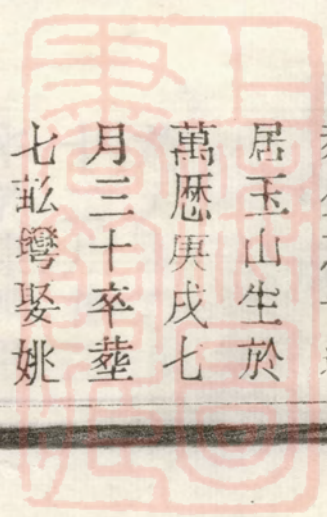 居玉山生於
萬厯庚戌七
月三十卒塟
七䂬灣娶姚